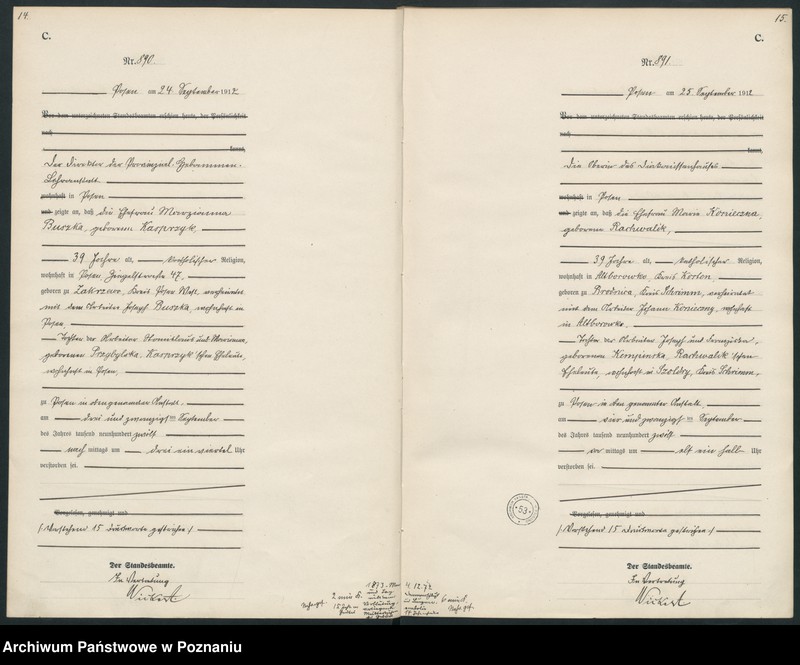 14.
C.
Nr. 890.
Posen am 24 September 1912
Vor dem unterzeichneten Standesbeamten erschien heute, der Persönlichkeit
nach
kannt,
Der Direktor der Provinzial-Hebammen-
Lehranstalt
wohnhaft in Posen
und zeigte an, daß die Ehefrau Marzianna
Buszka, geborene Kasprzyk,
39 Jahre alt, katholischer Religion,
wohnhaft in Posen 47,
geboren zu Zakrzewo, Kreis Posen West, verheiratet
mit dem Arbeiter Joseph Buszka, wohnhaft in
Posen,
Tochter der Arbeiter Stanislaus und Marianna,
geborenen Przybylska, Kasprzyk'schen Eheleute,
wohnhaft in Posen,
zu Posen in obengenannter Anstalt
am drei und zwanzigsten September
des Jahres tausend neunhundert zwölf
nach mittags um drei ein viertel Uhr
verstorben sei.
Vorgelesen, genehmigt und
(Vorstehend 15 Druckworte gestrichen)
Der Standesbeamte.
In Vertretung
Wickert
15.
C.
Nr. 891.
Posen am 25 September 1912
Vor dem unterzeichneten Standesbeamten erschien heute, der Persönlichkeit
nach
kannt,
Die Oberin des Diakonissenhauses
wohnhaft in Posen
und zeigte an, daß die Ehefrau Marie Konieczna,
geborene Rachwalik,
39 Jahre alt, katholischer Religion,
wohnhaft in Altborowko, Kreis Kosten
geboren zu Brodnica, Kreis Schrimm, verheiratet
mit dem Arbeiter Johann Konieczny, wohnhaft
in Altborowko,
Tochter der Arbeiter Joseph und Franziska,
geborenen Kempinska, Rachwalik'schen
Eheleute, wohnhaft in Szoldry, Kreis Schrimm,
zu Posen in den genannter Anstalt,
am vier und zwanzigsten September
des Jahres tausend neunhundert zwölf
vor mittags um elf ein halb Uhr
verstorben sei.
53
Vorgelesen, genehmigt und
(Vorstehend 15 Druckworte gestrichen)
Der Standesbeamte.
In Vertretung
Wickert
Archiwum Państwowe w Poznaniu